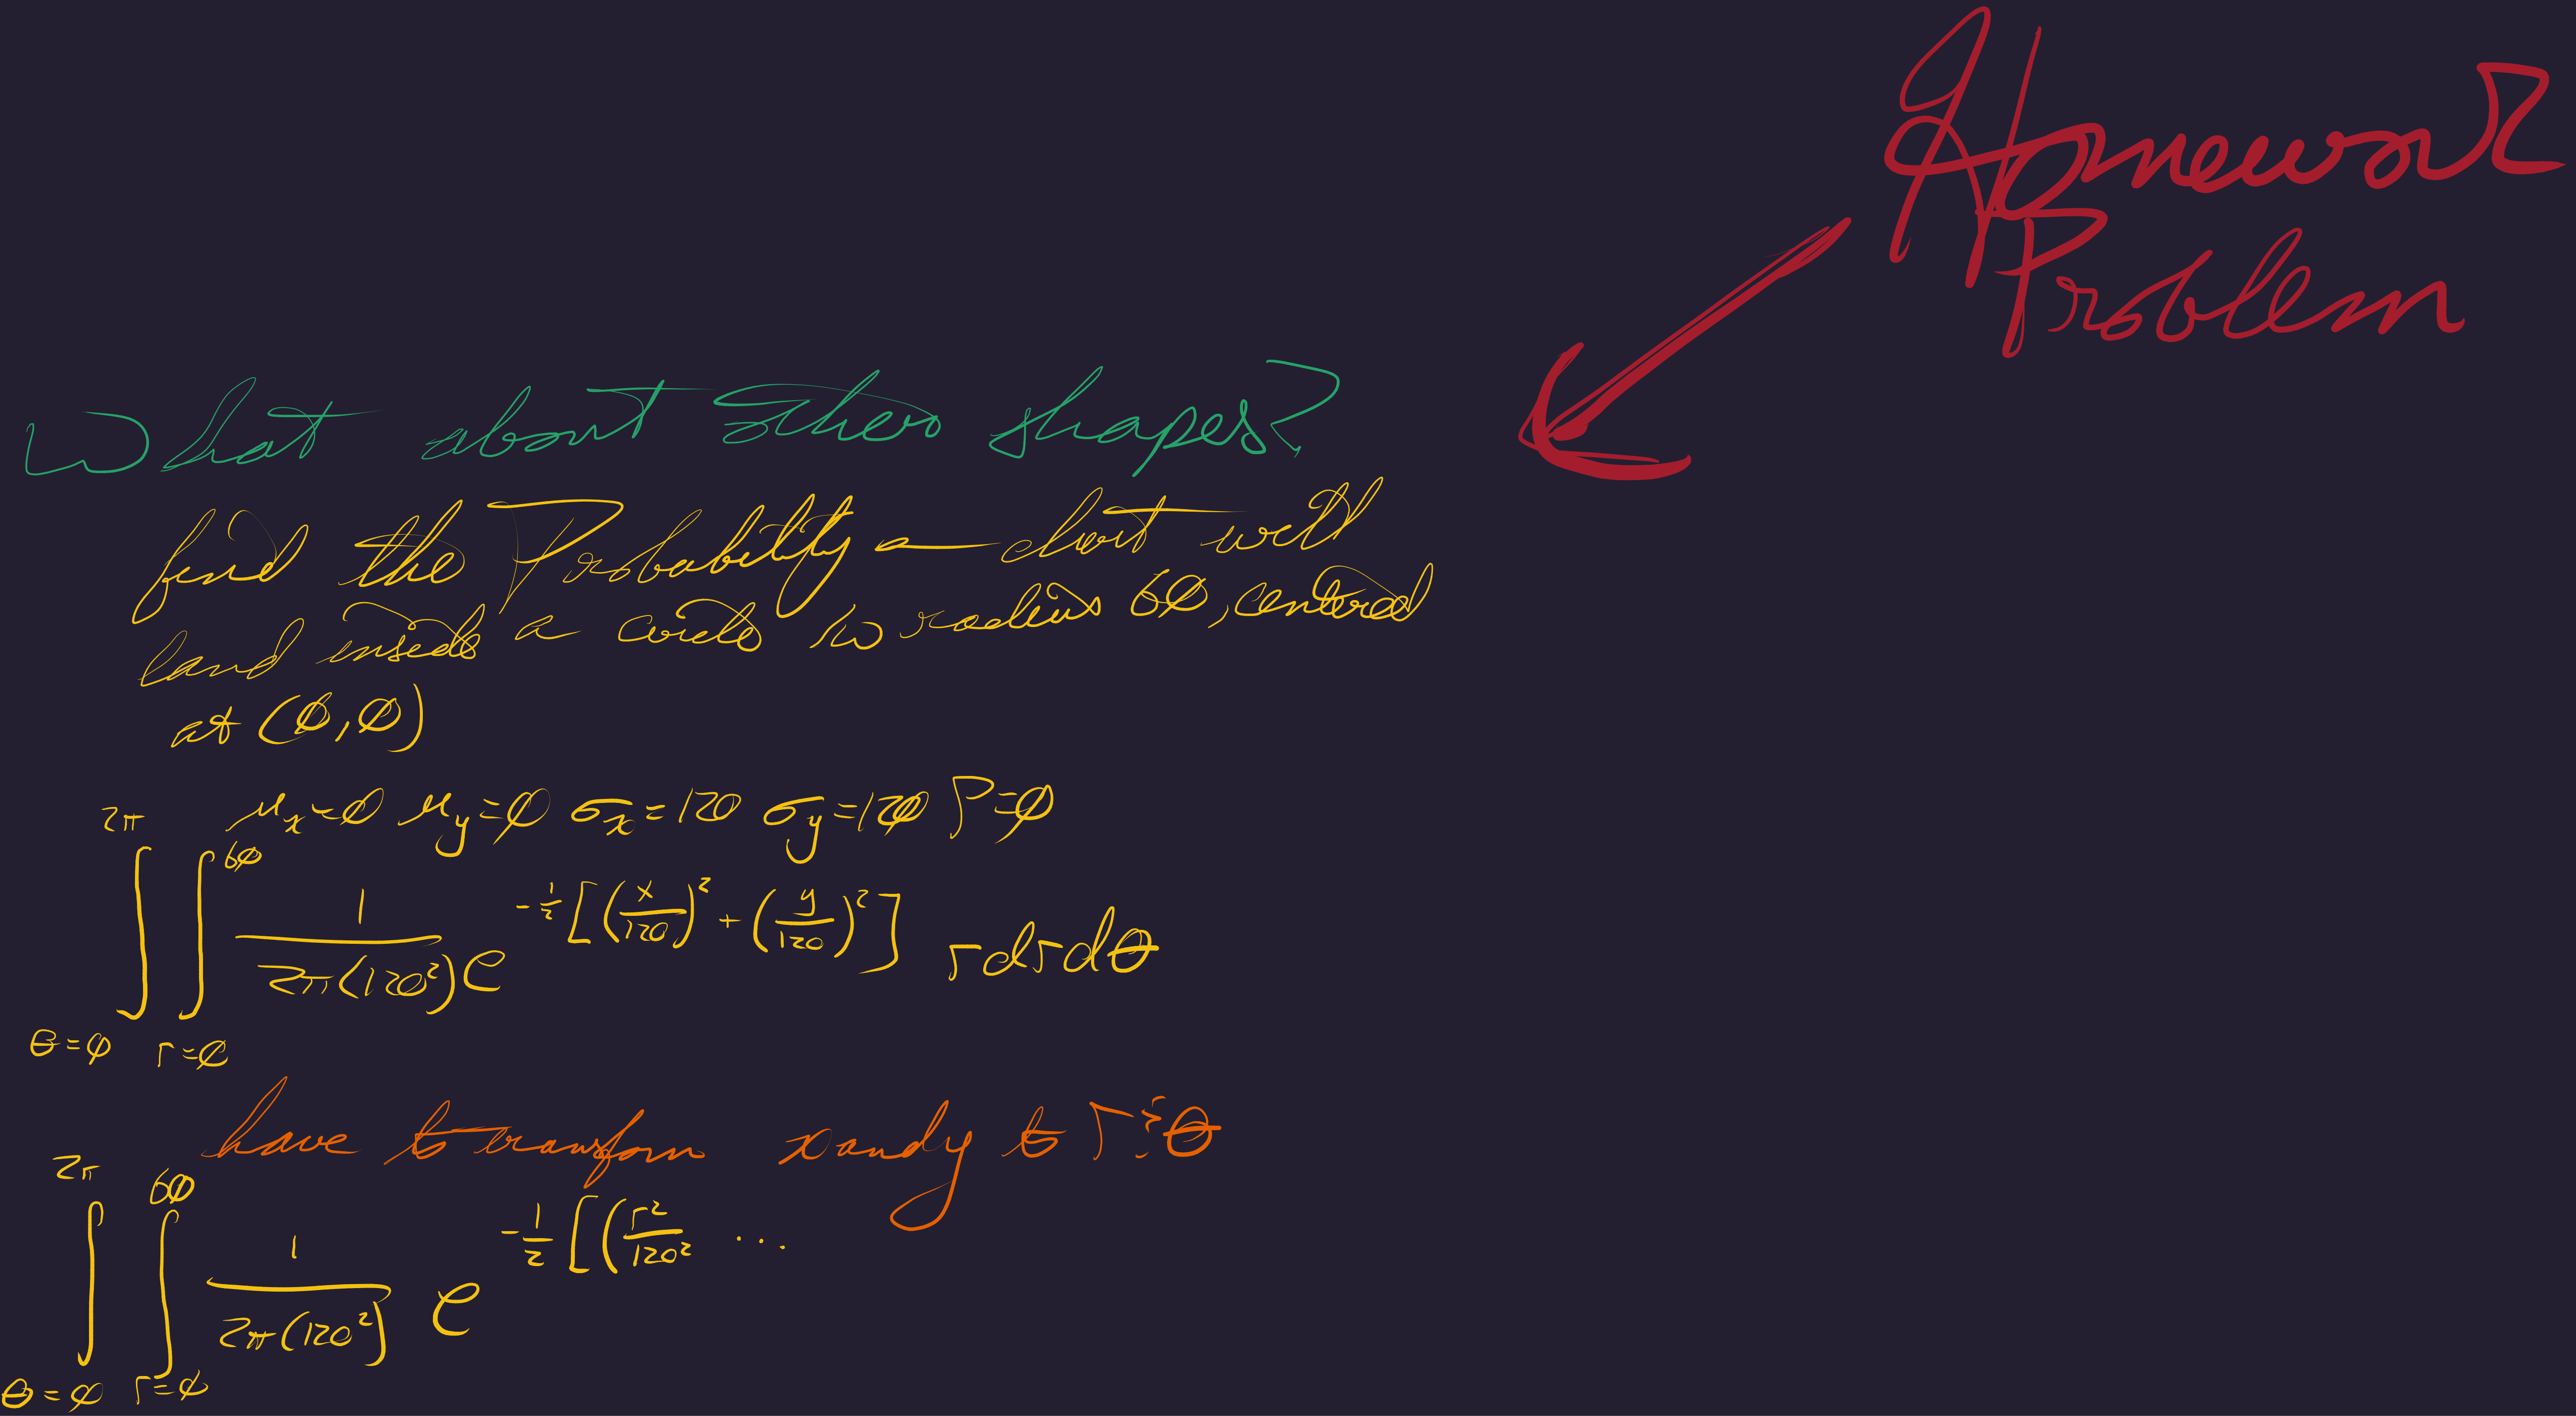 Homework
Problem
What about other shapes?
find the Probability a dart will
land inside a circle w radius 60, centered
at (0,0)
μx=0 μy=0 σx=120 σy=120 ρ=0
∫_{θ=0}^{2π} ∫_{r=0}^{60} 1/(2π(120²)) e^{-1/2[(x/120)² + (y/120)²]} r dr dθ
have to transform x and y to r & θ
∫_{θ=0}^{2π} ∫_{r=0}^{60} 1/(2π(120²)) e^{-1/2[(r²/120² ...}